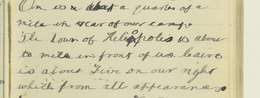 a quarter of a
mile in rear of our camp.
The town of Heliopolis is about
½ mile in front of us Cairo
is about five on our right
which from all appearances